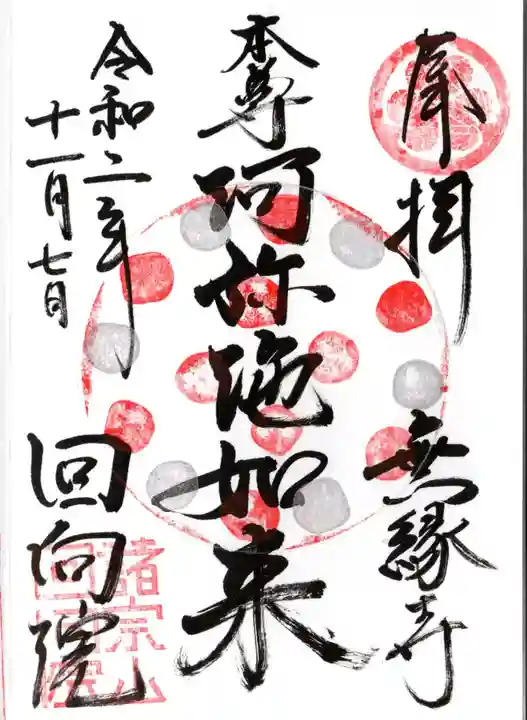 奉拝
無縁寺
本尊阿弥陀如来
令和二年
十一月七日
回向院
諸宗山
回向院